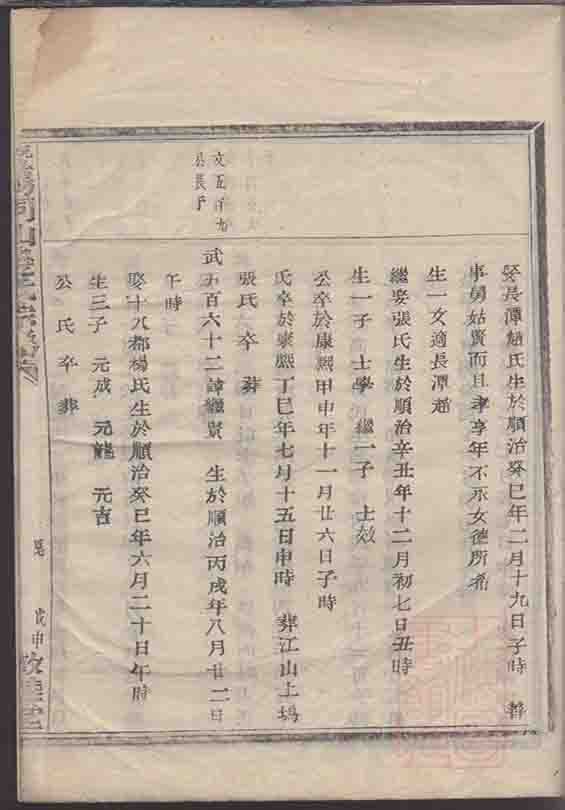 娶長潭趙氏生於順治癸巳年二月十九日子時
事舅姑賢而且孝享年不永女德所希
生一女適長潭趙
繼娶張氏生於順治辛丑年十二月初七日丑時
生一子 士學 繼一子 士效
公卒於康熙甲申年十一月廿六日子時
氏卒於康熙丁巳年七月十五日申時 葬江山上塢
張氏 卒 葬
文五百九
公長子
武五百六十二諱繼賢 生於順治丙戌年八月廿二日
午時
娶十八都楊氏生於順治癸巳年六月二十日午時
生三子 元成 元龍 元吉
公 氏 卒 葬
戊申 敦睦堂